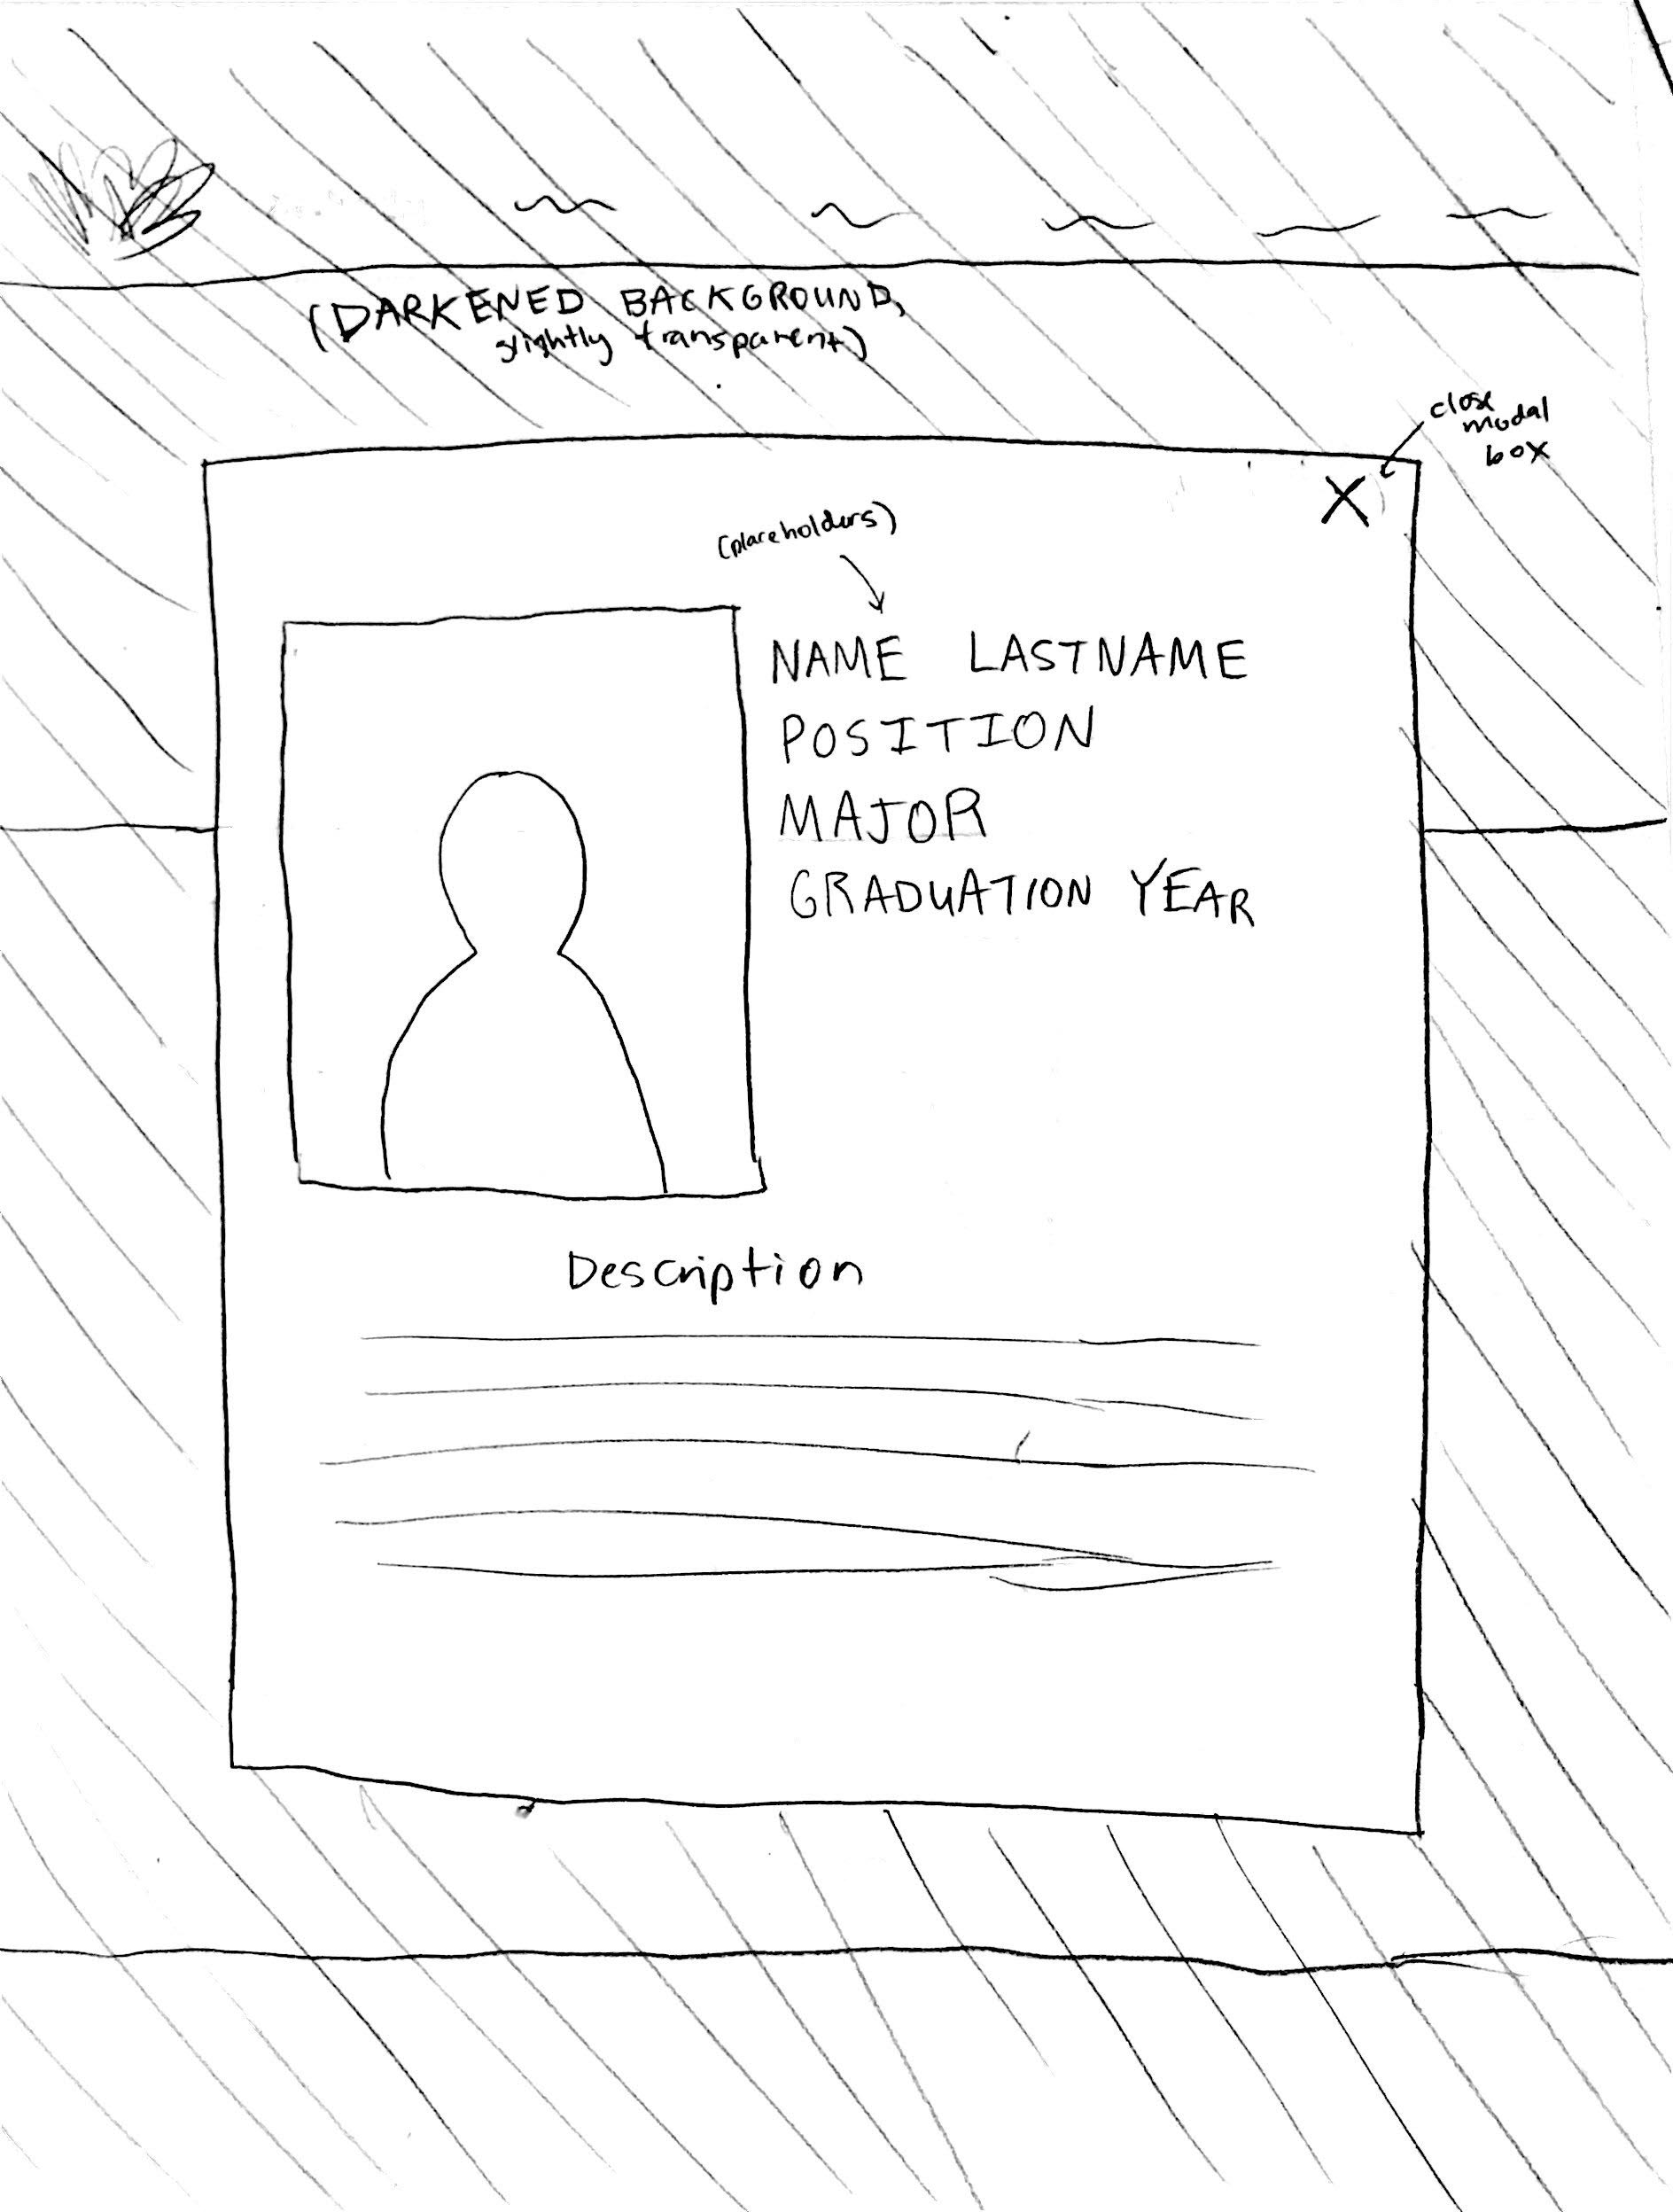 (DARKENED BACKGROUND,
slightly transparent)
close
modal
box
X
(placeholders)
NAME LASTNAME
POSITION
MAJOR
GRADUATION YEAR
Description